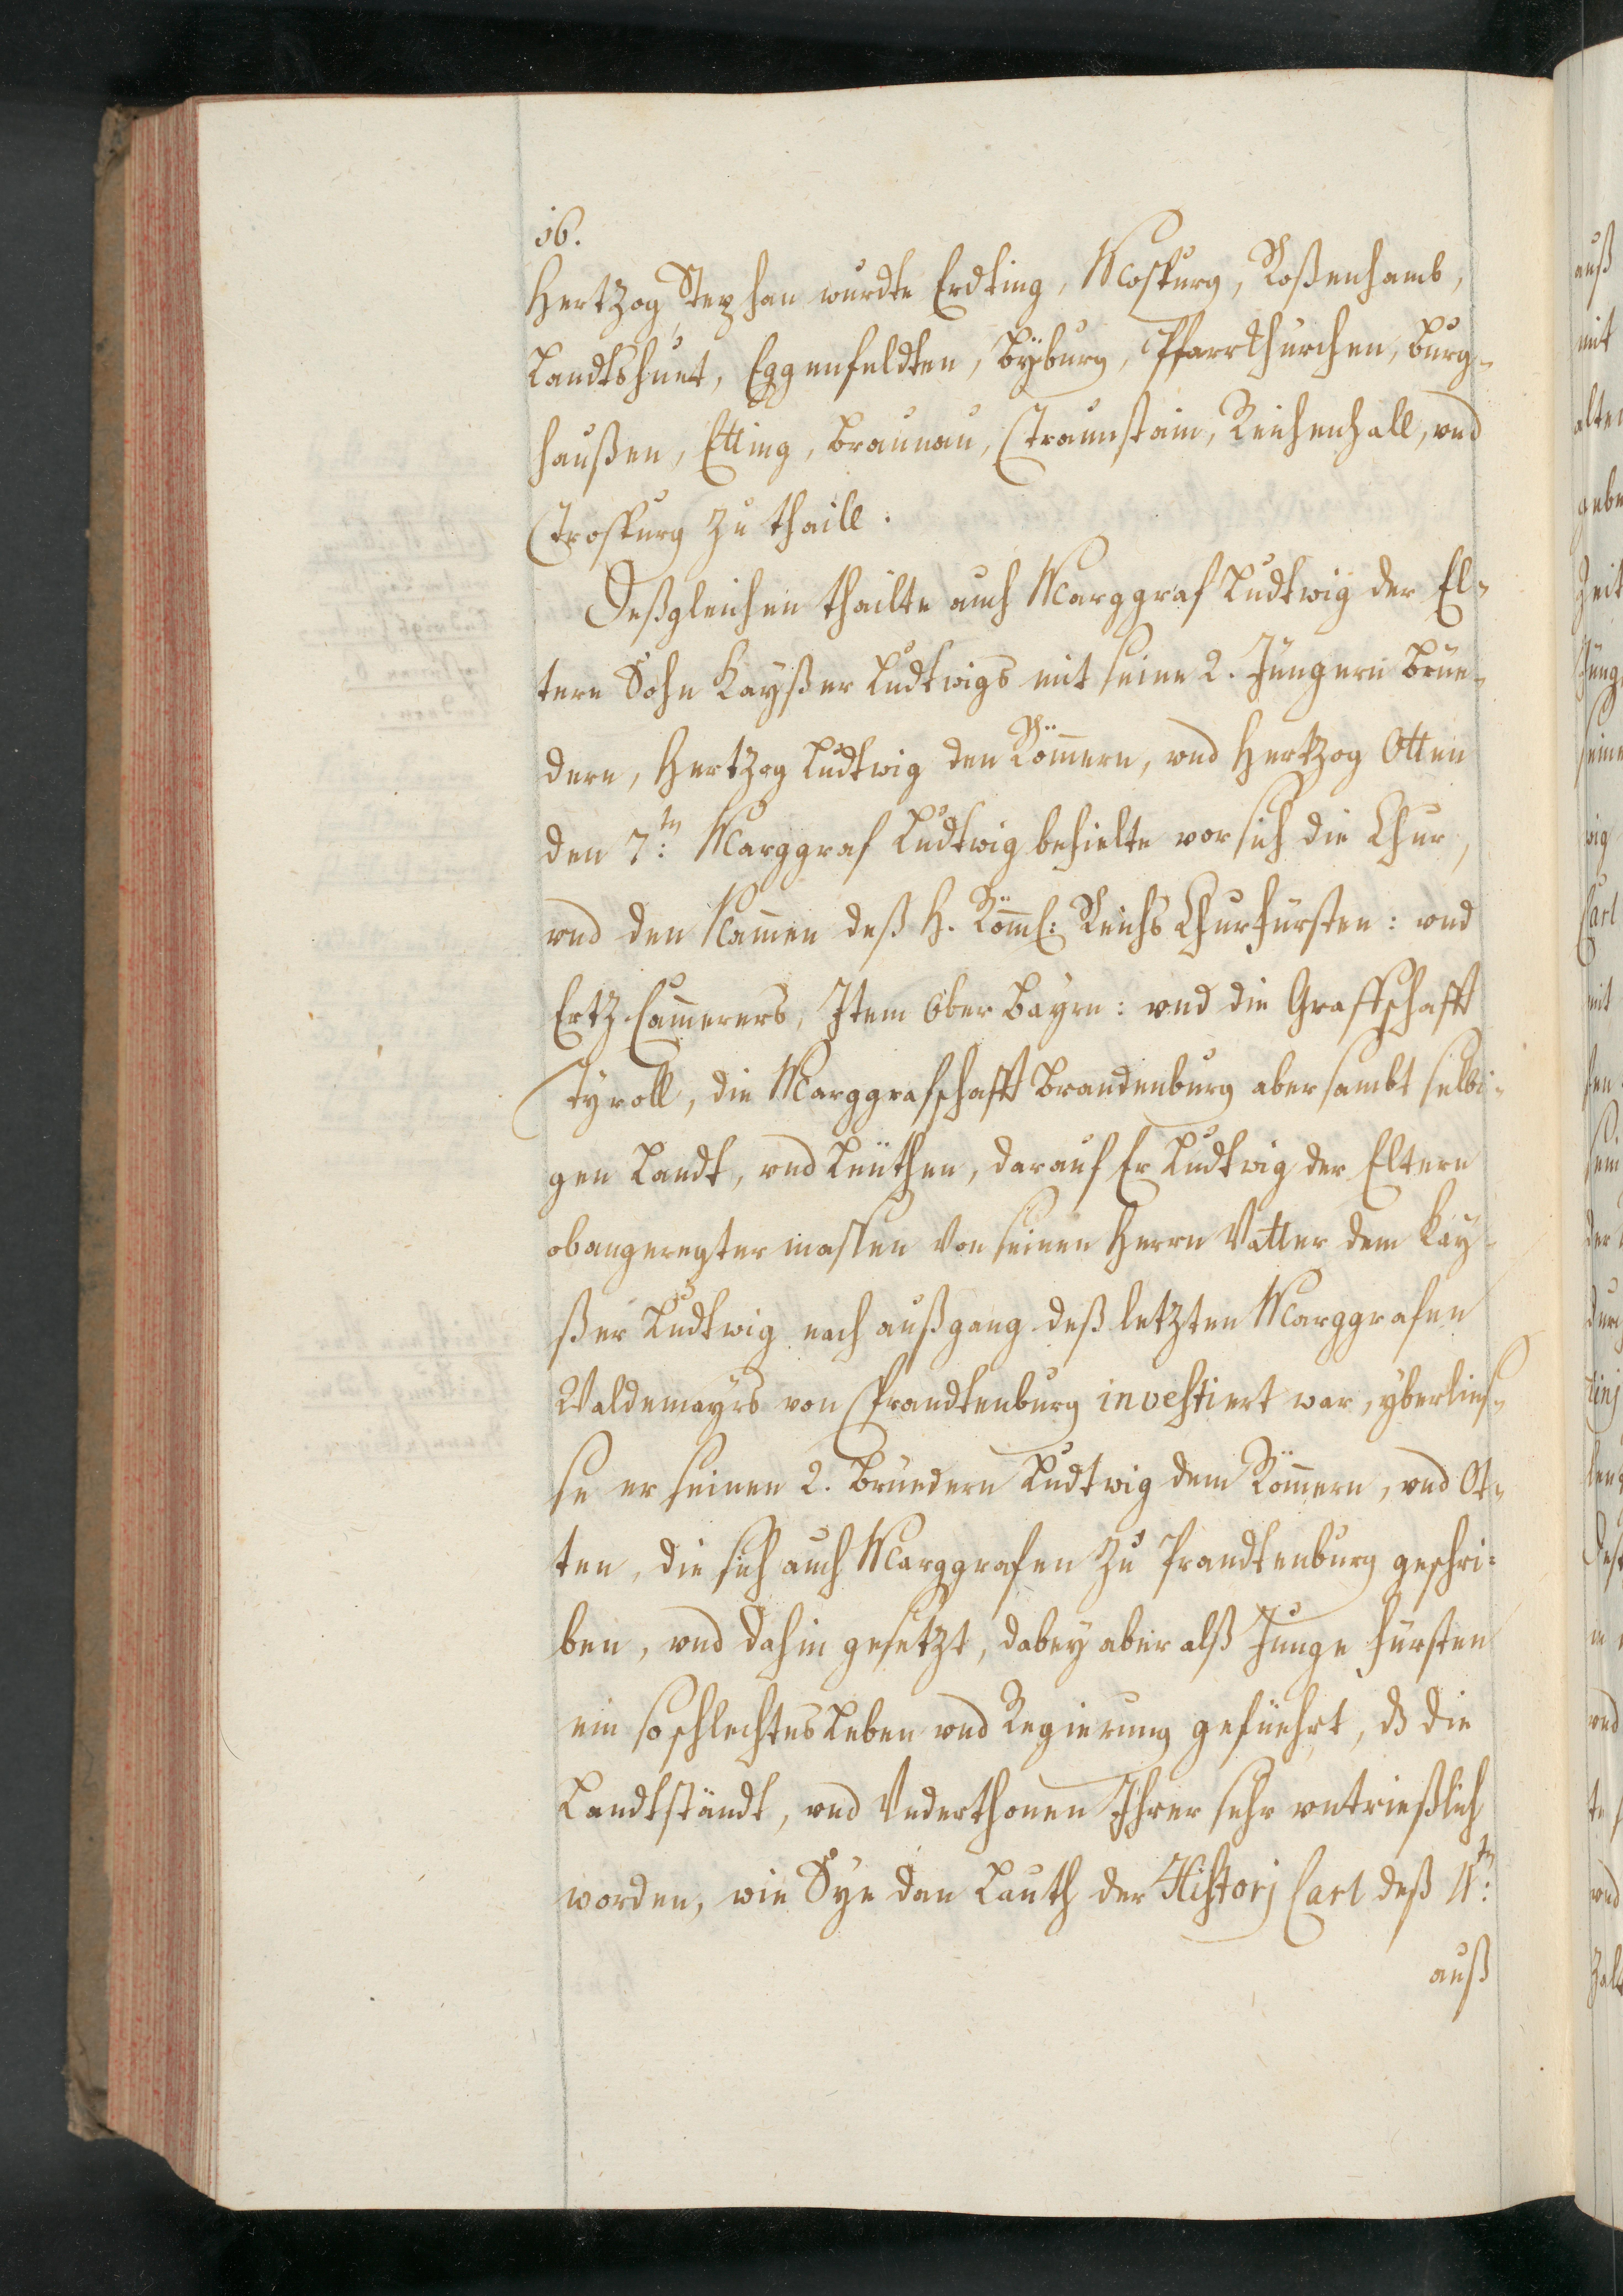 16.
Hertzog Stephan wurdte Erdting, Mosßburg, Roßenhamb,
Landtshuet, Eggenfeldten, Vÿburg, Pfarrkhürchen, Burg-
haußen, Etting, Braunau, Traunstain, Reichenhall, vnd
Trosburg zu thaill.
Deßgleichen thailte auch Marggraf Ludtwig der El-
tere Sohn Kayßer Ludtwigs mit seine 2. Jüngern Brüe-
dere, Hertzog Ludtwig den Römmern, vnd Hertzog Otten
den 7:tn Marggraf Ludtwig behielte vor sich die Chur,
vnd den Nammen deß H. Römml: Reichs Churfürsten: vnd
Ertz Cammerers, Item Ober Bayrn: vnd die Graffschafft
Tyroll, die Marggrafschafft Brandenburg aber sambt selbi-
gen Landt, vnd Leüthen, darauf Er Ludtwig der Eltere
obangeregter massen Von seinen Herrn Vatter dem Kay-
ßer Ludtwig nach außgang deß letzten Marggrafen
Waldemayrs von Prandtenburg investiert war, yberlies-
se er seinen 2. Brüedern Ludtwig dem Römmern, vnd Ot-
ten, die sich auch Marggrafen zu Prandtenburg geschri-
ben, vnd dahin gesetzt, dabey aber alß Junge Fürsten
ein so schlechtes Leben vnd Regierung gefüehrt, dß die
Landtständt, vnd Vnderthonen Ihrer sehr vrtrießlich
worden, wie Sye dan Lauth der Historj Carl deß 4:tn
auß
auß
mit
alten
Zeit
wig
Carl
mit
der
vnd
vnd